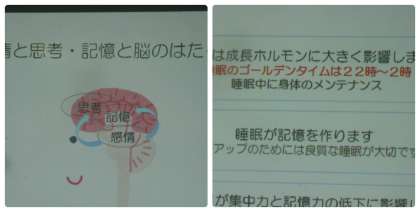 情と思考・記憶と脳のはた
思考
記憶
感情
は成長ホルモンに大きく影響しま
眠のゴールデンタイムは22時～2時
睡眠中に身体のメンテナンス
睡眠が記憶を作ります
アップのためには良質な睡眠が大切です
が集中力と記憶力の低下に影響し